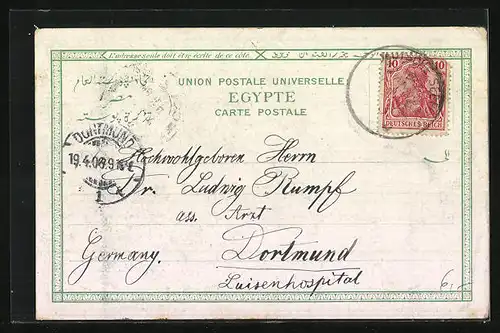 L'adresse seule doit être écrite de ce côté.
UNION POSTALE UNIVERSELLE
EGYPTE
CARTE POSTALE
10 10
DEUTSCHES REICH
DORTMUND
19.4.06.9
1
Hochwohlgeboren Herrn
Dr. Ludwig Rumpf
ass. Arzt
Germany. Dortmund
Luisenhospital
6,-